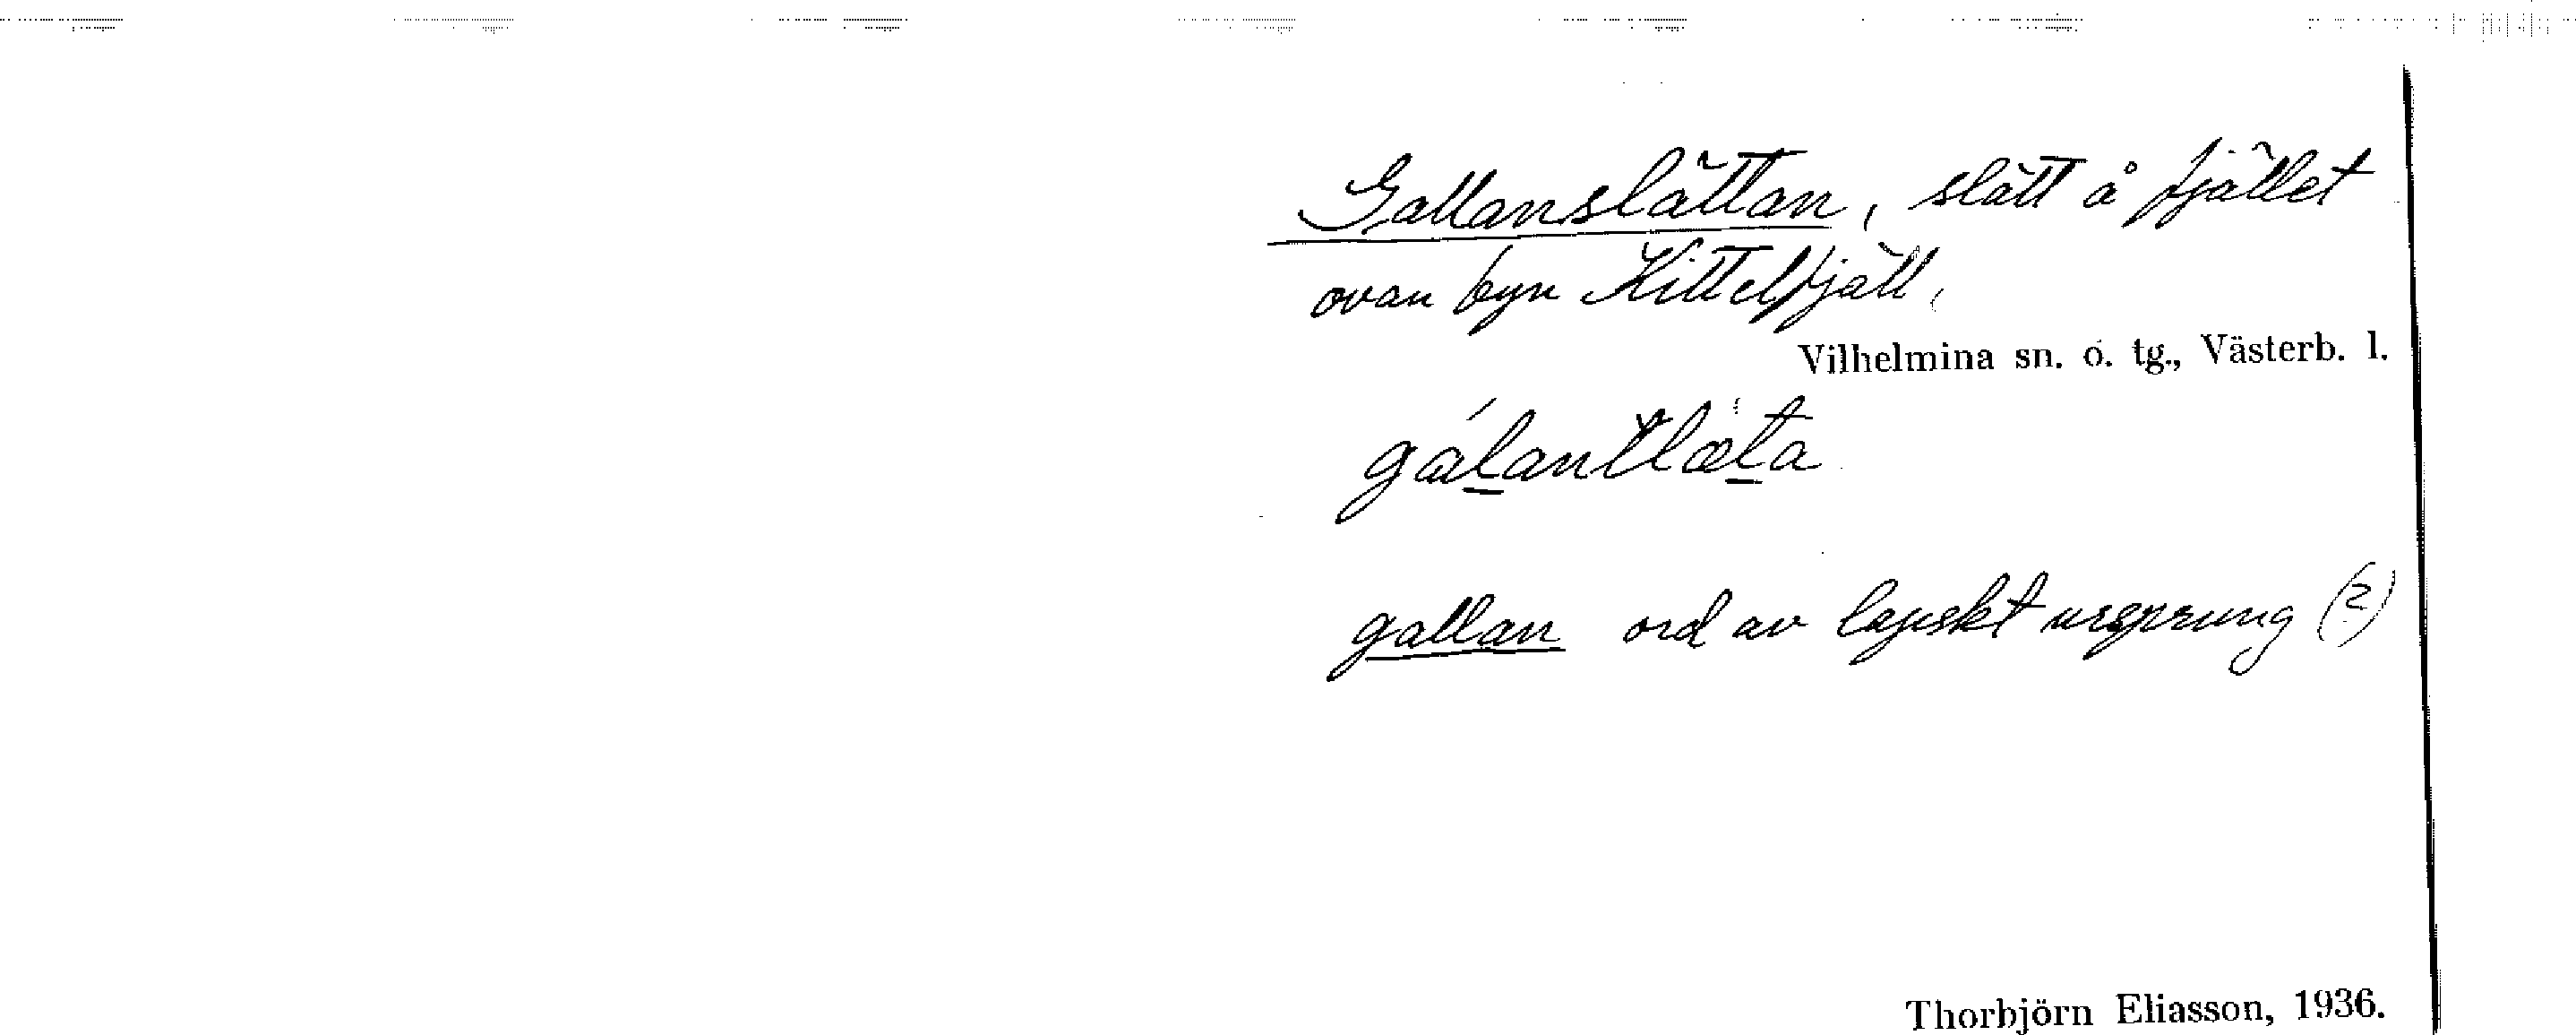 Gallanslättan, slätt å fjället
ovan byn Kittelfjäll,
Vilhelmina sn. o. tg., Västerb. l.
gálantlæta
gallan ord av lapskt ursprung (?)
Thorbjörn Eliasson, 1936.